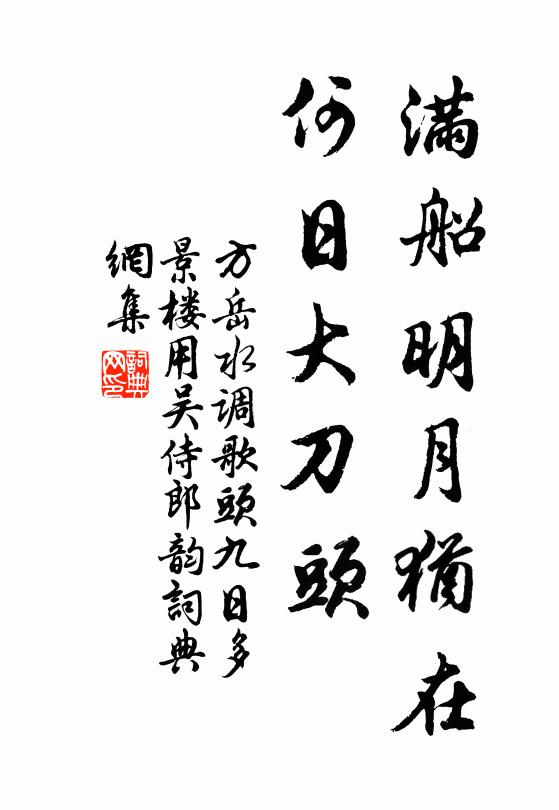 满船明月犹在
何日大刀頭
方岳水调歌頭九日多
景楼用吴侍郎韵詞典
網集
詞典
网印